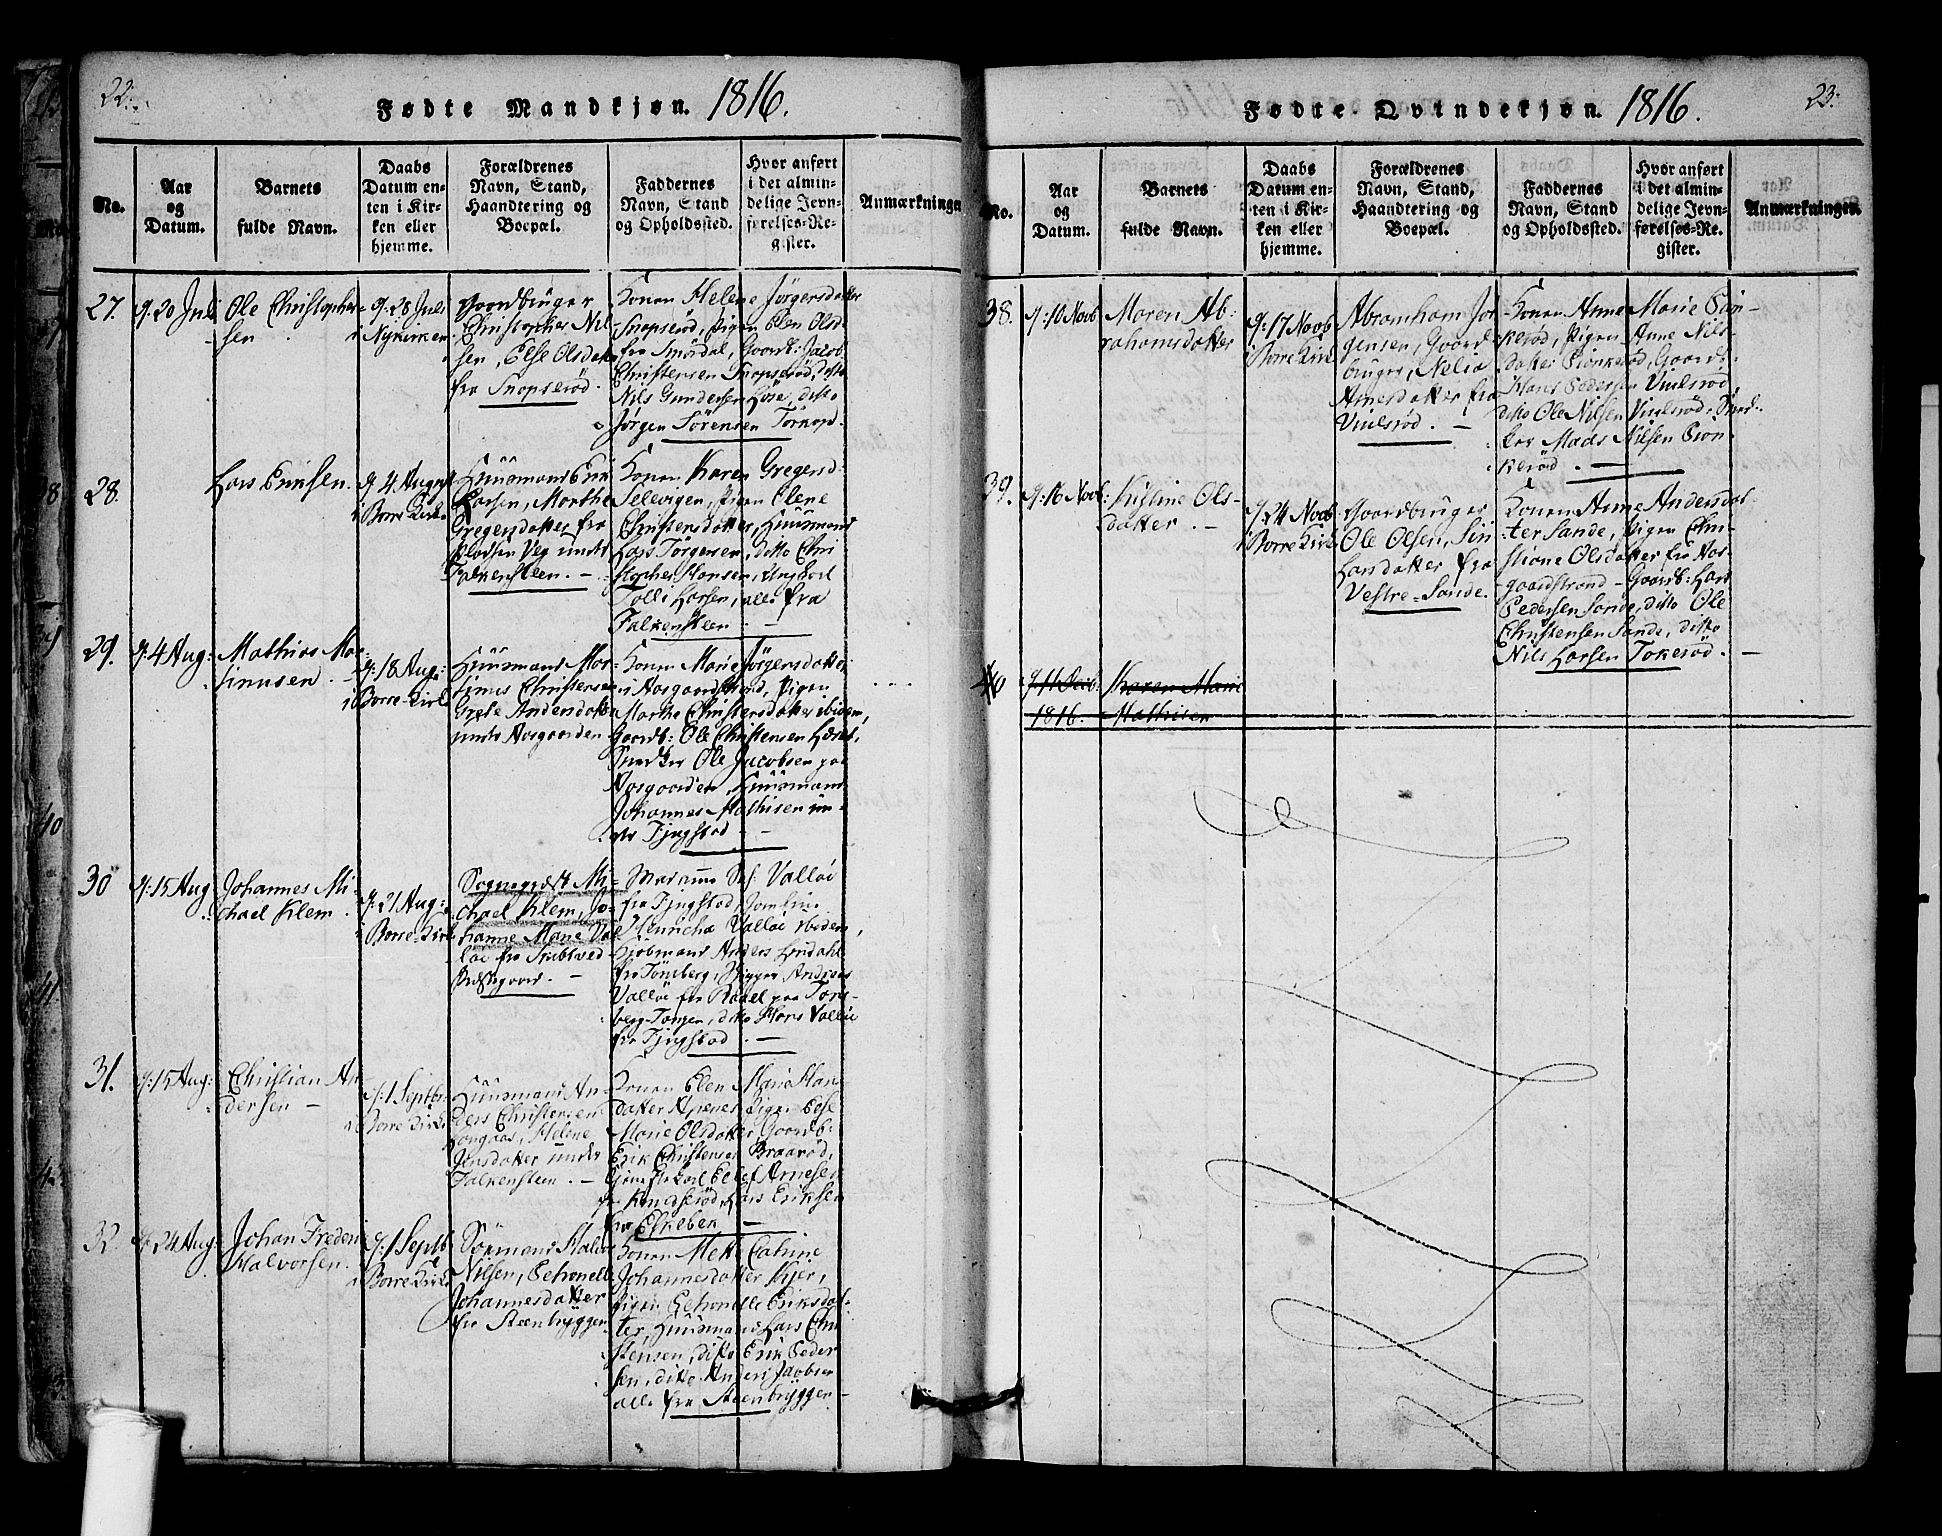 22.
Fødte Mandkjøn. 1816.
No.
Aar
og
Datum.
Barnets
fulde Navn.
Daabs
Datum en-
ten i Kir-
ken eller
hjemme.
Forældrenes
Navn, Stand,
Haandtering og
Boepæl.
Faddernes
Navn, Stand
og Opholdssted.
Hvor anført
i det almin-
delige Jevn-
førelses-Re-
gister.
Anmærkninger
27.
d: 20 Juli
Ole Christopher-
sen
d: 28 Juli
i Nykirken
Gaardbruger
Christopher Nil-
sen, Else Olsdatt
fra Snopserød.
Konen Helene Jörgersdatter
Snopseröd, Pigen Elen Olsd.
fra Smördal, Gaardb: Jacob
Christensen Snopseröd, ditto
Nils Gundersen Löse, ditto
Jörgen Sörensen Törkop.
28.
Lars Eriksen.
d: 4 Aug
i Borre Kirke
Huusmand Erik
Larsen, Marthe
Gregersdatter fra
Kladsen Veg under
Falkensteen.
Konen Karen Gregersd:
Sellevigen, Pigen Elene
Christensdatter, Huusmand
Lars Jörgensen, ditto Chri-
stopher Hansen, Ungkarl
Tolle Larsen, alle fra
Falkensteen.
29.
d: 4 Aug:
Mathias Mar-
tinusen.
d: 18 Aug:
i Borre Kirke
Huusmand Mar-
tinus Christensen
Grete Andersdatter
under Aasgaarden.
Konen Marie Jörgensdatter
i Aasgaardstrand, Pigen
Marthe Christensdatter ibidem,
Gaardb: Ole Christensen
Snedker Ole Jacobsen paa
Aasgaarden, Huusmand
Johannes Mathisen un-
der Fjugstad.
30
d: 15 Aug
Johannes Mi-
chael Klem.
d: 21 Aug:
i Borre Kirke
Sognepræst Mi-
chael Klem, Jo-
hanne Marie Val-
löe fra
Præstgaard.
Valløe
fra Fjugstad, Jomfrue
Henricha Valløe ibidem,
Kjöbmand Anders Lindahl
fra Tönsberg, Andreas
Valløe fra Ramel paa Tons-
berg-Tangen, ditto Hans Valløe
fra Fjugstad.
31.
d: 15 Aug:
Christian An-
dersen
d: 1 Septbr.
i Borre Kirke
Huusmand An-
ders Christensen
Helene
Jensdatter under
Falkensteen.
Konen Elen Marie Han-
datter Apenes, Pigen Else
Marie Olsdatter, Gaardb:
Erik Christensen Braaröd,
Ellef Arnesen
fra Knudseröd, Lars Eriksen
fra Ekebek
32.
d: 24 Aug:
Johan Frederi
Halvorsen.
d: 1 Septb
i Borre Kirke
Sömand Halvor
Nilsen, Petronelle
Johannesdatter
fra Steenbryggen
Konen Mette Catrine
Johannesdatter Kjær,
Pigen Petronelle Eriksdat-
ter, Huusmand Lars Chri-
stensen, ditto Erik Peder-
sen, ditto Anders Jacobsen
alle fra Steenbryggen
23.
Fødte Qvindekjøn. 1816.
No.
Aar
og
Datum.
Barnets
fulde Navn.
Daabs
Datum en-
ten i Kir-
ken eller
hjemme.
Forældrenes
Navn, Stand,
Haandtering og
Boepæl.
Faddernes
Navn, Stand
og Opholdssted.
Hvor anført
i det almin-
delige Jevn-
førelses-Re-
gister.
Anmærkninger.
38.
d: 10 Novb
Maren Ab-
rahamsdatter
d: 17 Novb
i Borre Kirk
Abramham Jör-
gensen, Gaard-
bruger, Nelia
Arnesdatter fra
Viulsröd.
Konen Anne Marie Pion-
keröd, Pigen Anne Nils-
datter Pionkeröd, Gaardb:
Hans Pedersen Viulsröd,
ditto Ole Nilsen Viulsröd, Sned-
ker Mads Nilsen Pion-
keröd.
39.
d: 16 Novb:
Kistine Ols-
datter.
d: 24 Novb
i Borre Kirke
Gaardbruger
Ole Olsen, Siri
Larsdatter fra
Vestre-Sande.
Konen Anne Andersdat-
ter Sande, Pigen Chri-
stiane Olsdatter fra Aas-
gaardstrand, Gaardb: Lars
Pedersen Sande, ditto Ole
Christensen Sande, ditto
Nils Larsen Tokeröd.
40
d: 11 Novb:
1816.
Karen Marie
Mathisen